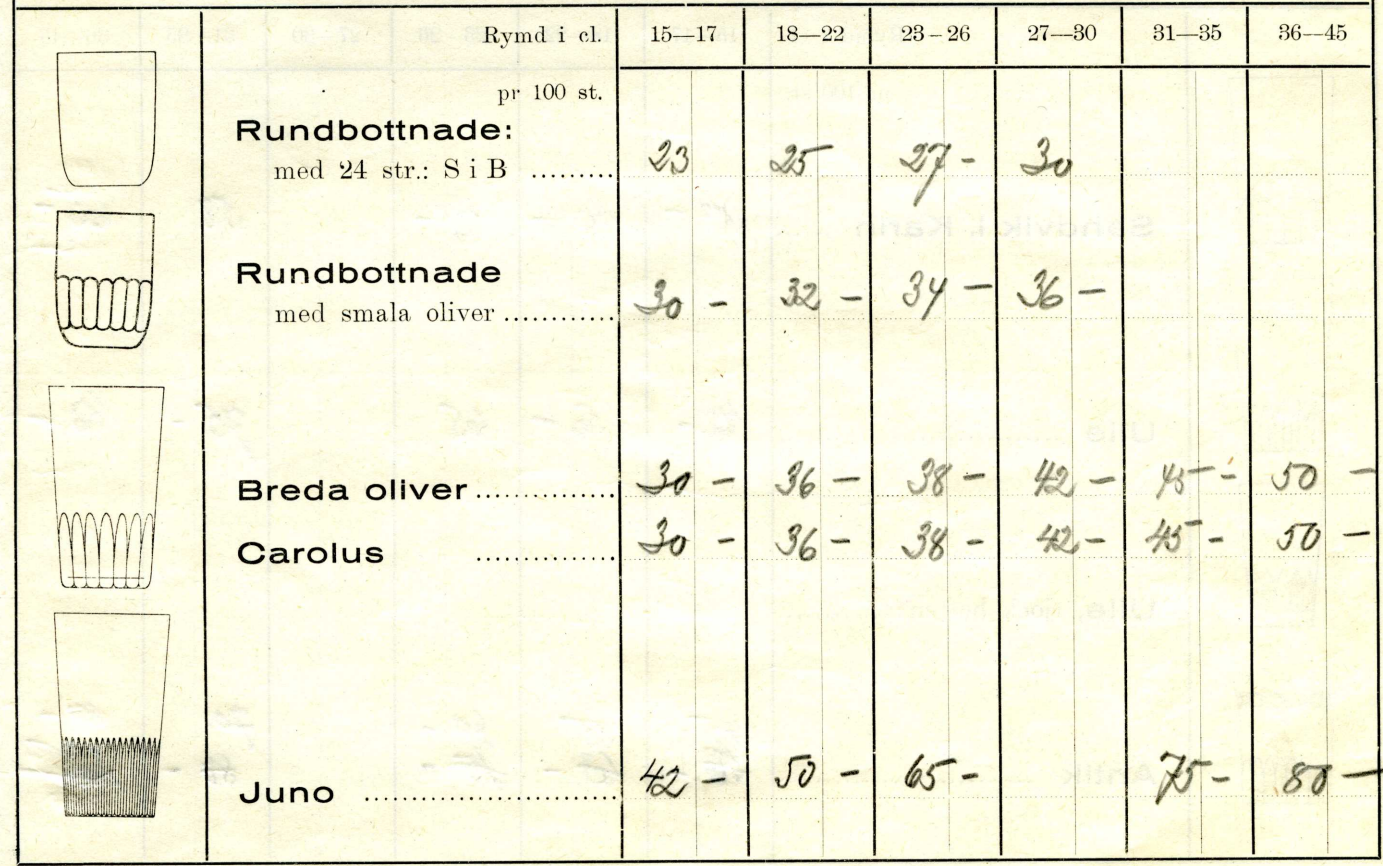 Rymd i cl. 15–17 18—22 23–26 27—30 31—35 36—45
pr 100 st.
Rundbottnade:
med 24 str.: S i B ......... 23 25 27- 30
Rundbottnade
med smala oliver ............ 30 - 32 - 34 - 36 -
Breda oliver .............. 30 - 36 - 38 - 42 - 45 - 50 -
Carolus .............. 30 - 36 - 38 - 42- 45 - 50 -
Juno ......................... 42 - 50 - 65- 75- 80 -